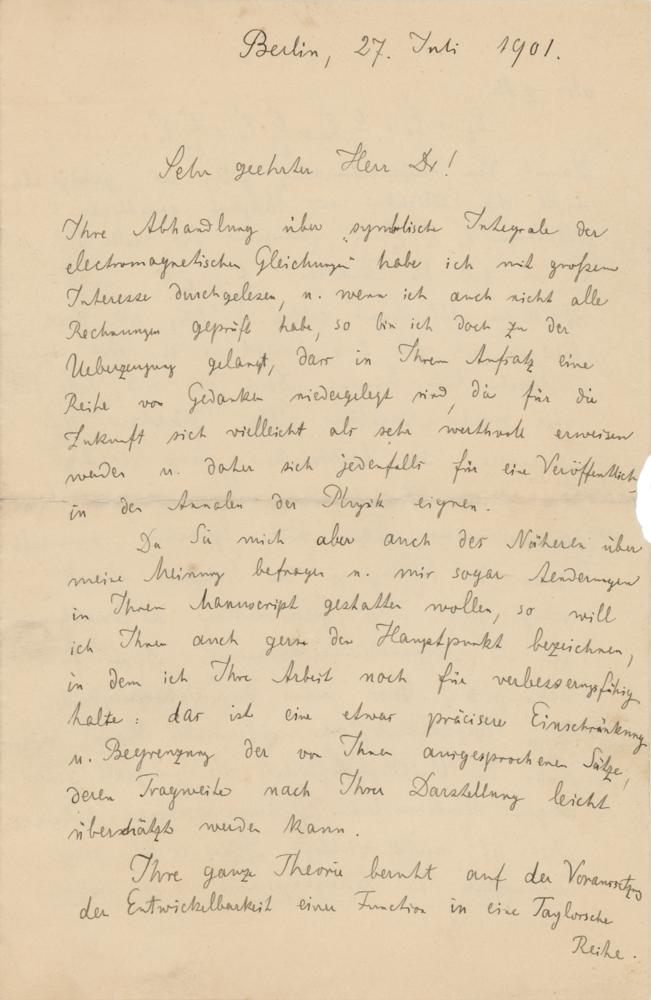 Berlin, 27. Juli 1901.
Sehr geehrter Herr Dr!
Ihre Abhandlung über „symbolische Integrale der
electromagnetischen Gleichungen" habe ich mit großem
Interesse durchgelesen, u. wenn ich auch nicht alle
Rechnungen geprüft habe, so bin ich doch zu der
Ueberzeugung gelangt, dass in Ihrem Aufsatz eine
Reihe von Gedanken niedergelegt sind, die für die
Zukunft sich vielleicht als sehr werthvoll erweisen
werden u. daher sich jedenfalls für eine Veröffentlich
in den Annalen der Physik eignen.
Da Sie mich aber auch des Näheren über
meine Meinung befragen u. mir sogar Aenderungen
in Ihrem Manuscript gestatten wollen, so will
ich Ihnen auch gern den Hauptpunkt bezeichnen,
in dem ich Ihre Arbeit noch für verbesserungsfähig
halte: das ist eine etwas präcisere Einschränkung
u. Begrenzung der von Ihnen ausgesprochenen Sätze,
deren Tragweite nach Ihrer Darstellung leicht
überschätzt werden kann.
Ihre ganze Theorie beruht auf der Voraussetzung
der Entwickelbarkeit einer Function in eine Taylorsche
Reihe.